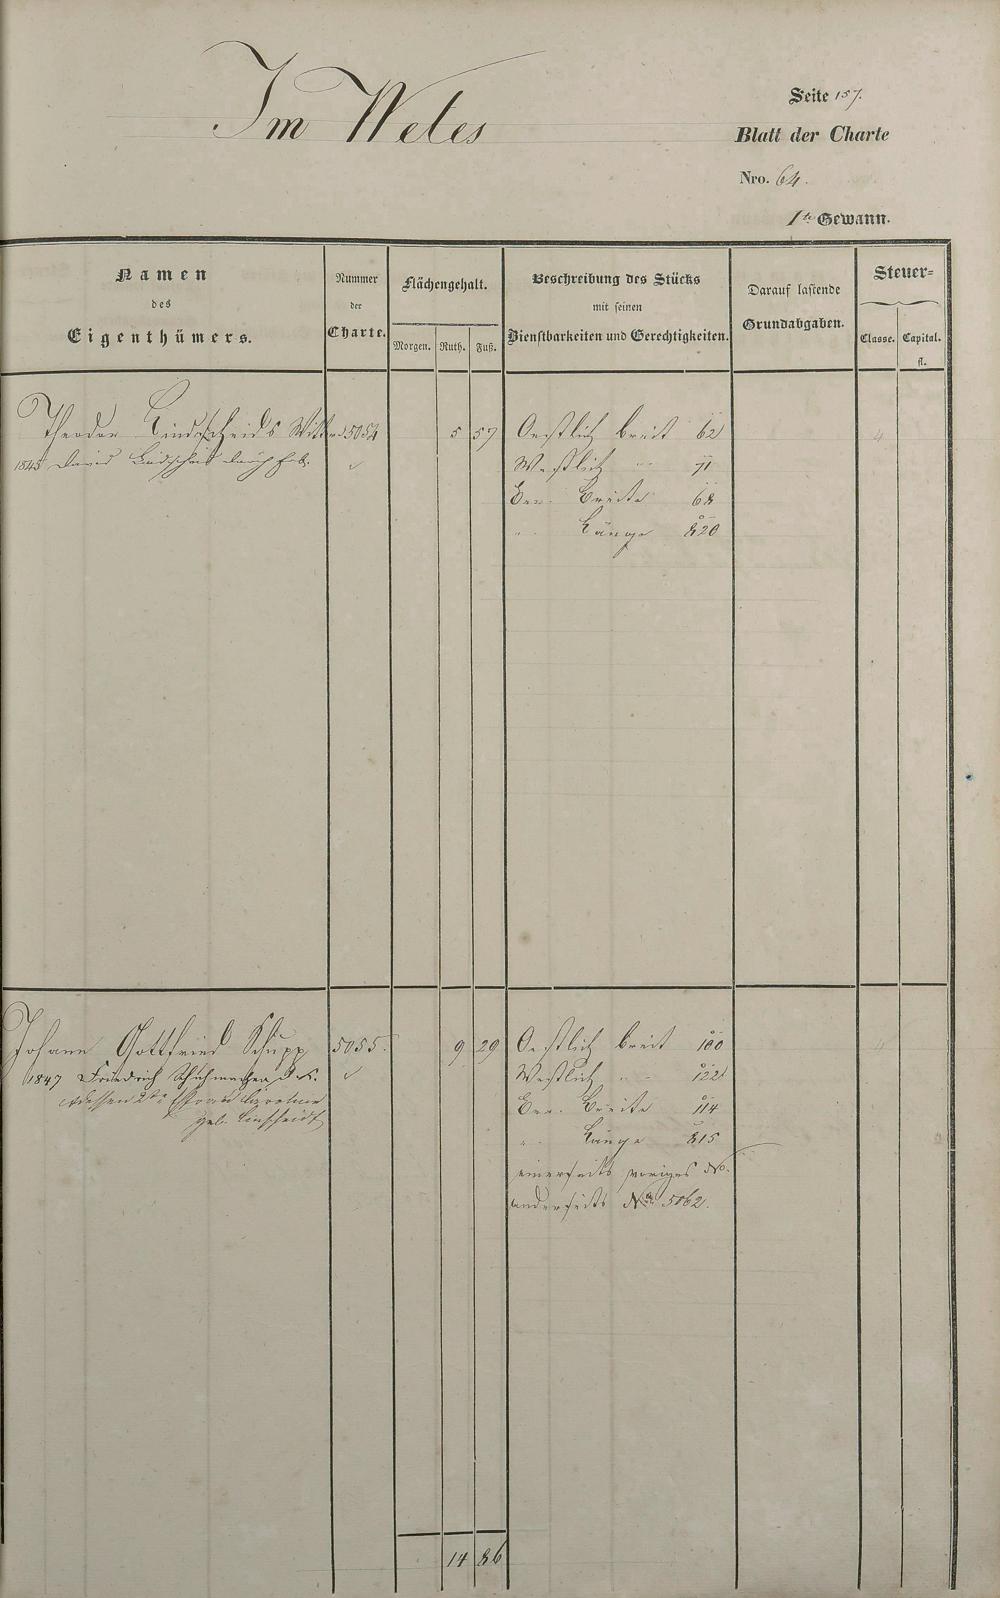 Im Wetes
Seite 157.
Blatt der Charte
Nro. 64.
1te Gewann.
Namen
des
Eigenthümers.
Nummer
der
Charte.
Flächengehalt.
Morgen. Ruth. Fuß.
Beschreibung des Stücks
mit seinen
Dienstbarkeiten und Gerechtigkeiten.
Darauf lastende
Grundabgaben.
Steuer-
Classe. Capital.
fl.
Theodor Lindscheids 5054 5 57 Oestlich breit 62 4
1845 David Westlich " 71
Ber. Breite 68
" Länge 820
Johann Gottfried Schupp 5055. 9 29 Oestlich breit 100 4
1847 Friedrich Schuhmacher Westlich " 122
dessen 2te Ehefrau Ber. Breite 114
geb. Linscheidt " Länge 815
einerseits voriges No.
anderseits No. 5062.
14 86